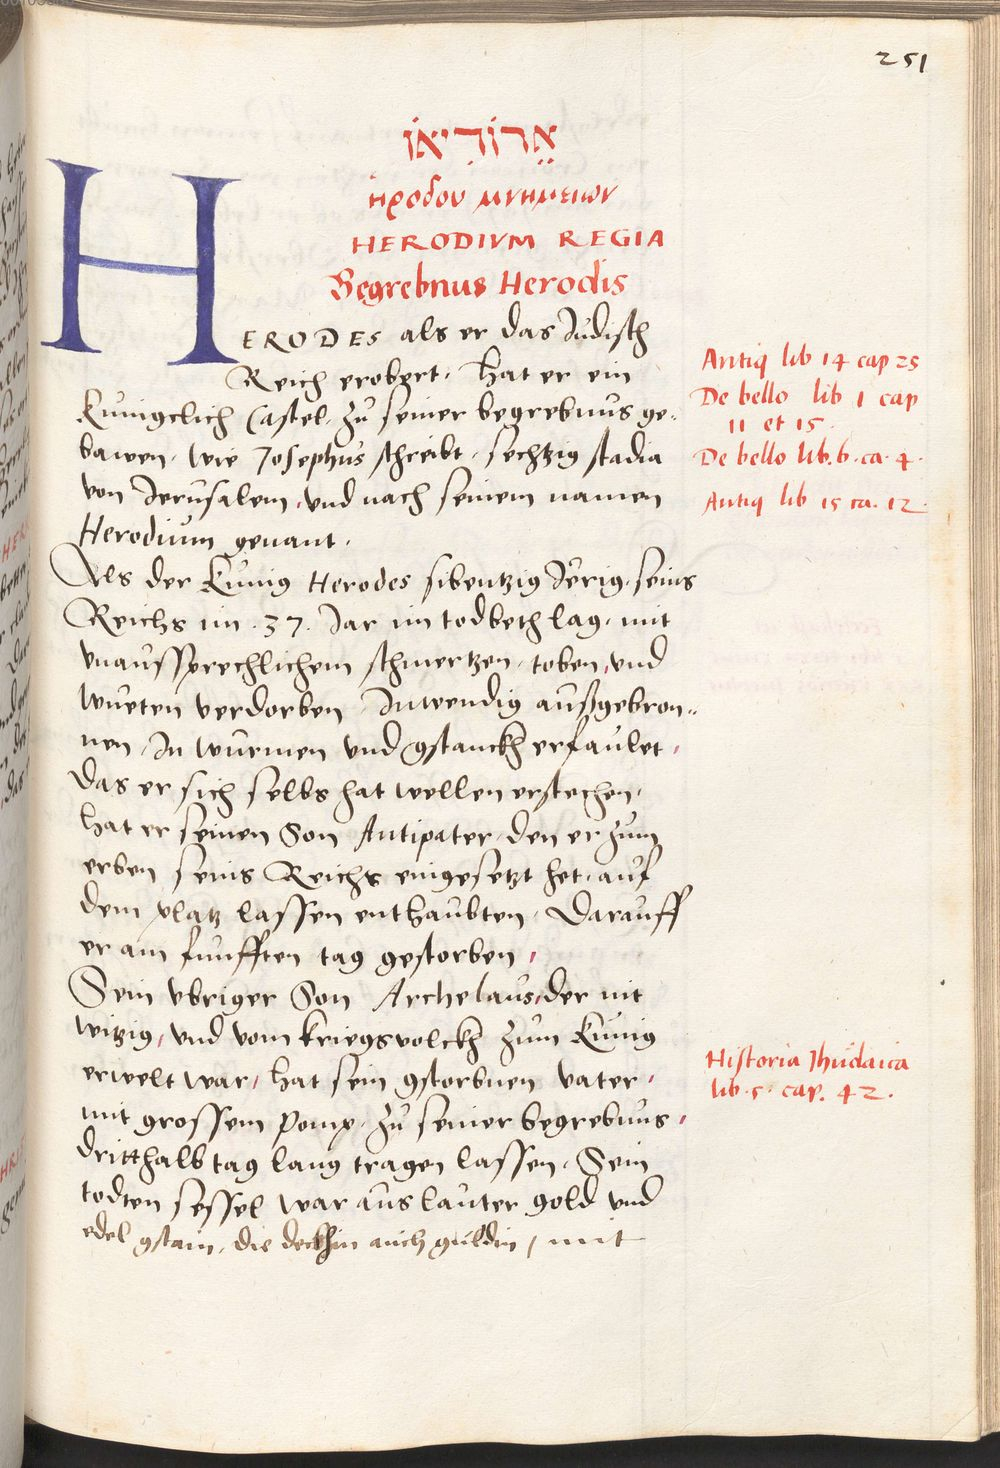 251
אֱרוֹדִיאוֹ
ἡροδου μνημειων
HERODIVM REGIA
Begrebnus Herodis
HERODES als er das Jüdisch
Reich erobert, hat er ein
Kunigclich Castel, zu seiner begrebnus ge=
bawen, wie Josephus schreibt, sechtzig stadia
von Jerusalem, und nach seinem namen
Herodium genant.
Als der Kunig Herodes sibentzig Jerig, seins
Reichs im .37. Jar im todbeth lag, mit
unaussprechlichem schmertzen, toben, und
wueten verdorben, Inwendig außgebron=
nen, In wurmen und gstanckh erfaulet,
Das er sich selbs hat wellen erstechen,
hat er seinen Son Antipater, den er zum
erben seins Reichs eingesetzt het, auf
dem platz lassen enthaubten, Darauff
er am funfften tag gestorben,
Sein ubriger Son Archelaus, der nit
witzig, und vom kriegsvolckh zum Kunig
erwelt war, hat sein gstorbnen vater,
mit grossem Pomp, zu seiner begrebnus,
dritthalb tag lang tragen lassen, Sein
todten sessel war aus lauter gold und
edel gstain, die deckhin auch guldin, mit
Antiq lib 14 cap 25
De bello lib 1 cap
11 et 15.
De bello lib. 6. ca. 4.
Antiq lib 15 ca. 12.
Historia Jhudaica
lib. 5. cap. 42.